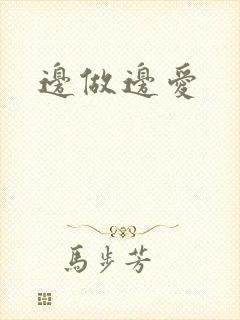 邊做邊愛
馬步芳